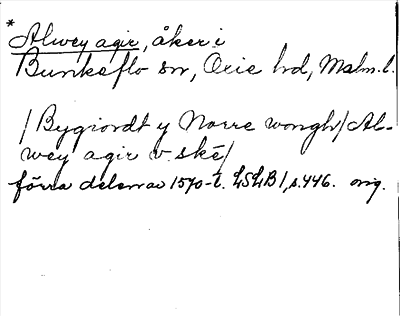 *
Alwey agir, åker i
Bunkeflo sn, Oxie hd, Malm.l.
/Bygiordt y Norre wongh/Al-
wey agir v skč/
förra delen av 1570-t. LSLB 1, s.446. orig.